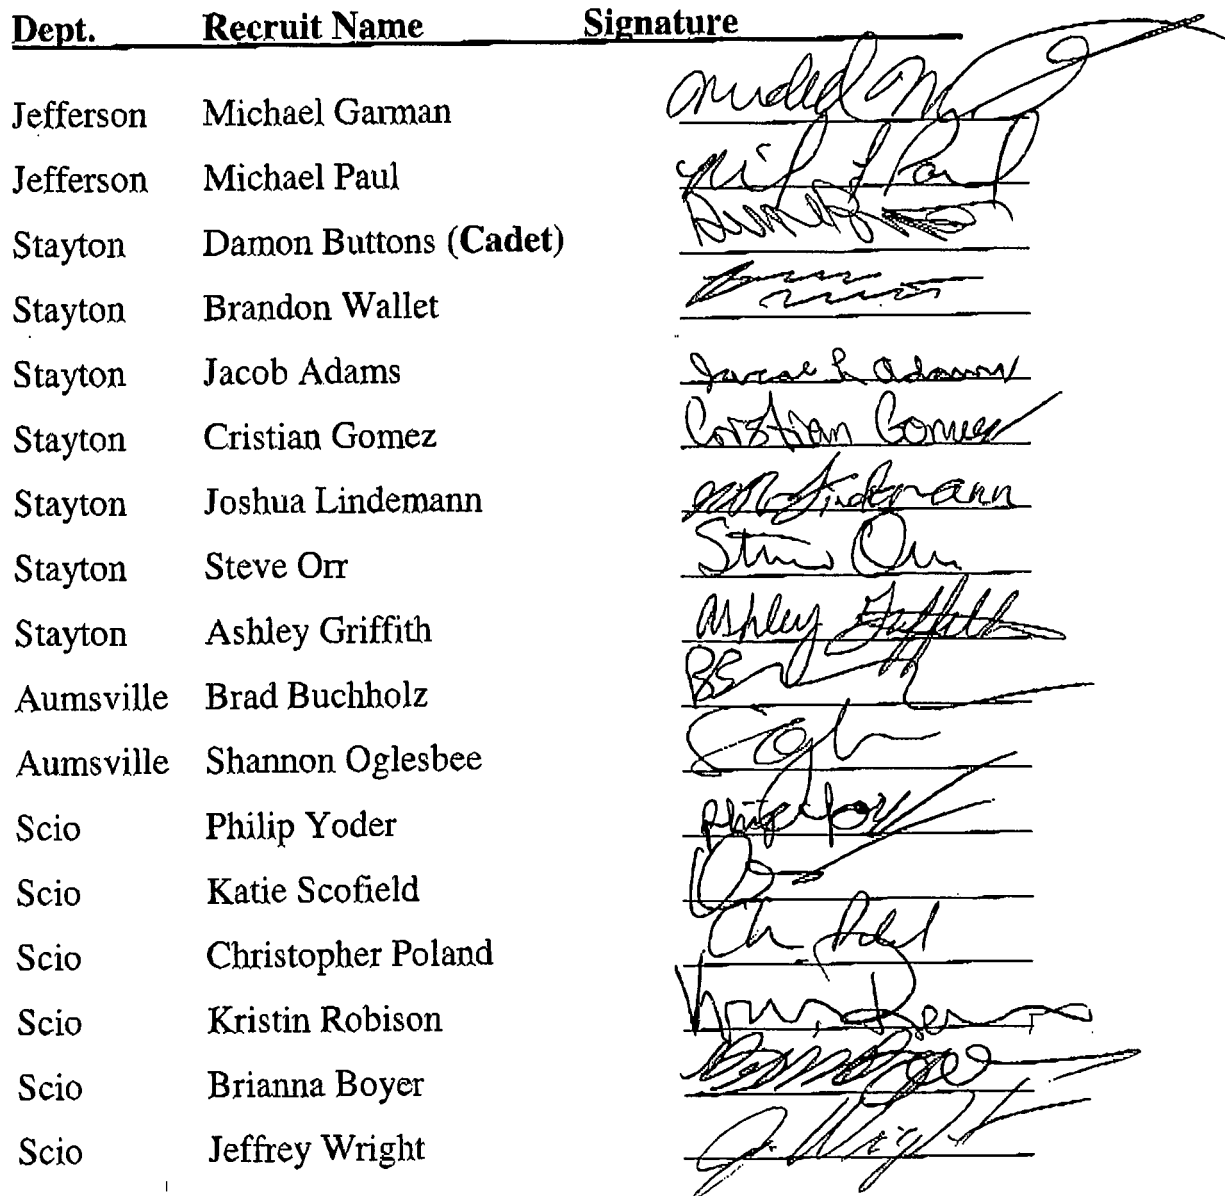 Dept. Recruit Name Signature
Jefferson Michael Garman
Jefferson Michael Paul Paul
Stayton Damon Buttons (Cadet)
Stayton Brandon Wallet
Stayton Jacob Adams Adams
Stayton Cristian Gomez Cristian Gomez
Stayton Joshua Lindemann Lindemann
Stayton Steve Orr
Stayton Ashley Griffith Ashley Griffith
Aumsville Brad Buchholz
Aumsville Shannon Oglesbee
Scio Philip Yoder Philip
Scio Katie Scofield
Scio Christopher Poland
Scio Kristin Robison
Scio Brianna Boyer
Scio Jeffrey Wright J. Wright